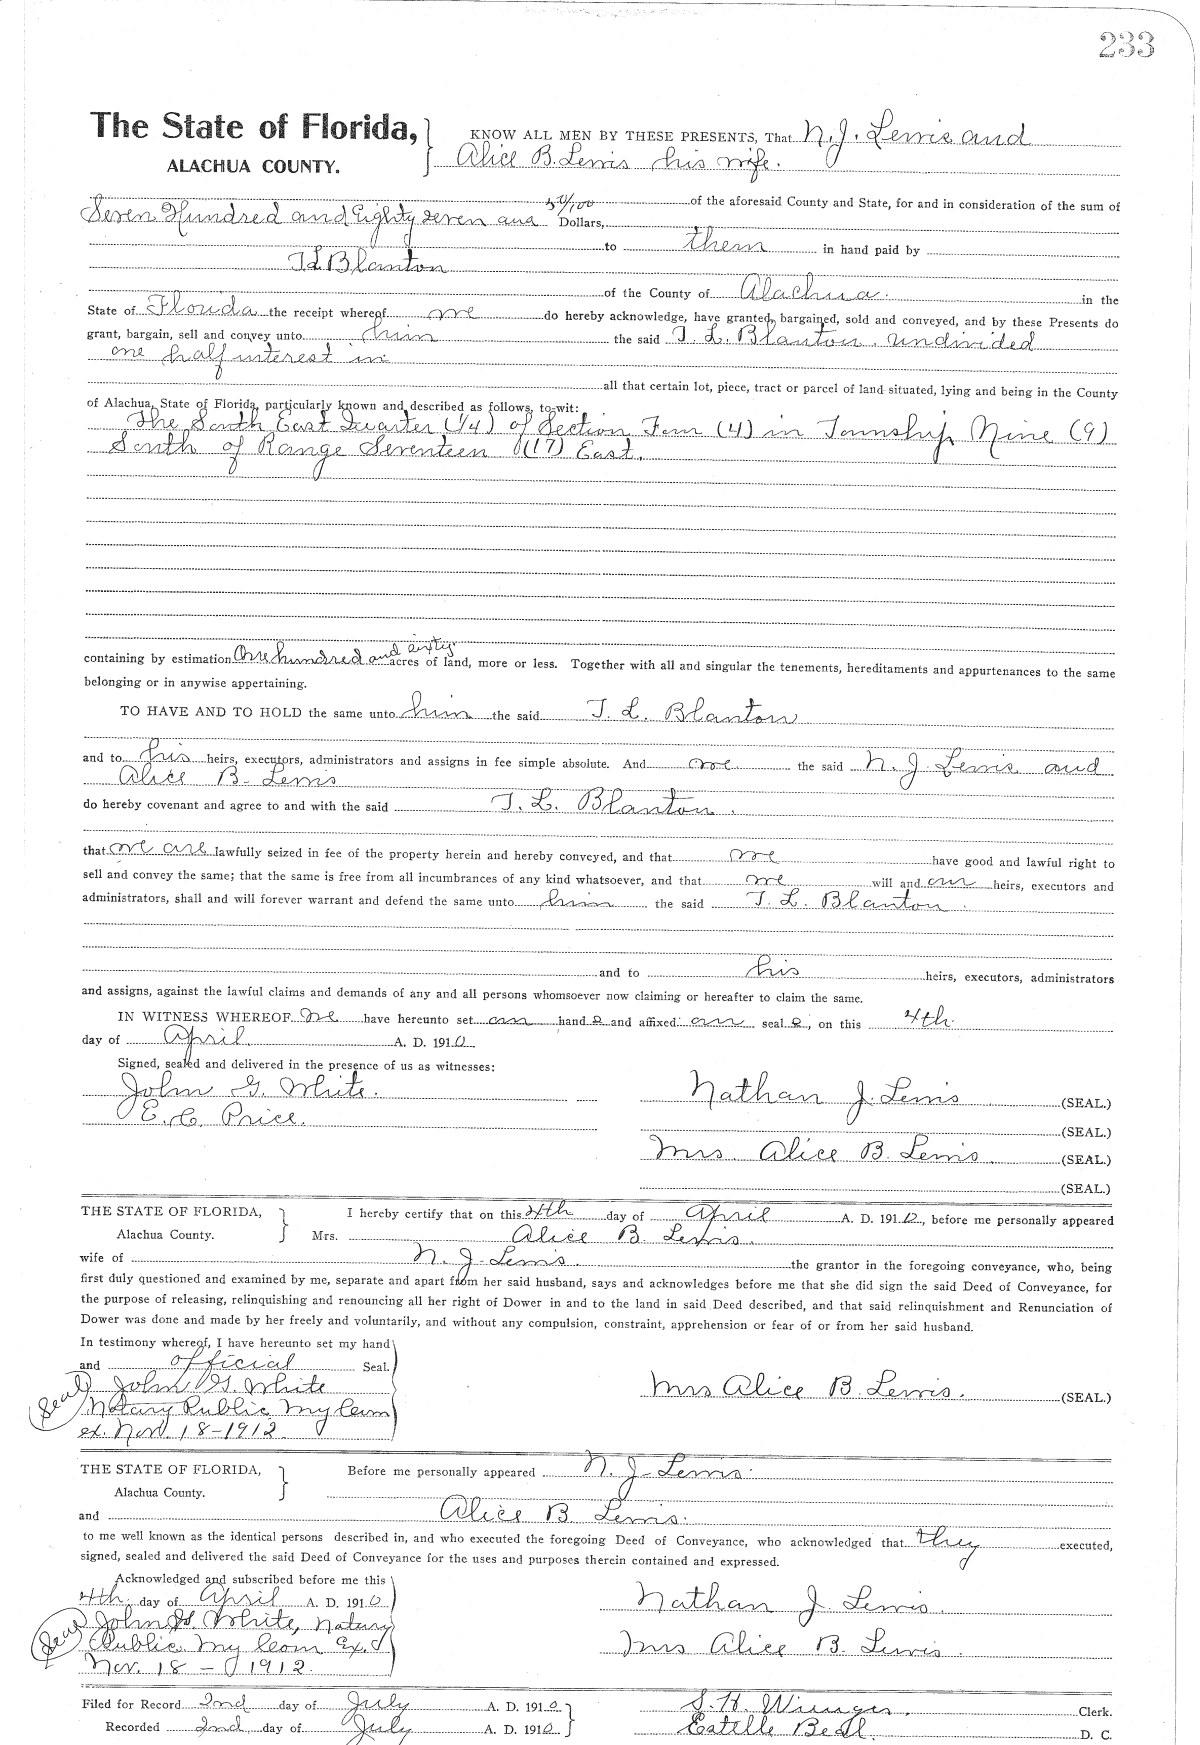 233
The State of Florida,
ALACHUA COUNTY.
KNOW ALL MEN BY THESE PRESENTS, That N. J. Lewis and
Alice B. Lewis his wife.
of the aforesaid County and State, for and in consideration of the sum of
Seven Hundred and Eighty seven and 50/100 Dollars,
to them in hand paid by
T L Blanton
of the County of Alachua. in the
State of Florida the receipt whereof we do hereby acknowledge, have granted, bargained, sold and conveyed, and by these Presents do
grant, bargain, sell and convey unto him the said T. L. Blanton. undivided
one half interest in
all that certain lot, piece, tract or parcel of land situated, lying and being in the County
of Alachua, State of Florida, particularly known and described as follows, to-wit:
The South East Quarter (1/4) of Section Four (4) in Township Nine (9)
South of Range Seventeen (17) East.
containing by estimation One hundred and sixty acres of land, more or less. Together with all and singular the tenements, hereditaments and appurtenances to the same
belonging or in anywise appertaining.
TO HAVE AND TO HOLD the same unto him the said T. L. Blanton
and to his heirs, executors, administrators and assigns in fee simple absolute. And we the said N. J. Lewis and
Alice B. Lewis
do hereby covenant and agree to and with the said T. L. Blanton.
that we are lawfully seized in fee of the property herein and hereby conveyed, and that we have good and lawful right to
sell and convey the same; that the same is free from all incumbrances of any kind whatsoever, and that we will and our heirs, executors and
administrators, shall and will forever warrant and defend the same unto him the said T. L. Blanton.
and to his heirs, executors, administrators
and assigns, against the lawful claims and demands of any and all persons whomsoever now claiming or hereafter to claim the same.
IN WITNESS WHEREOF we have hereunto set our hand s and affixed our seal s, on this 4th.
day of April A. D. 1910.
Signed, sealed and delivered in the presence of us as witnesses:
John G. White.
E. C. Price.
Nathan J. Lewis (SEAL.)
(SEAL.)
Mrs. Alice B. Lewis. (SEAL.)
(SEAL.)
THE STATE OF FLORIDA,
Alachua County.
I hereby certify that on this 4th day of April A. D. 1910, before me personally appeared
Mrs. Alice B. Lewis.
wife of N. J. Lewis. the grantor in the foregoing conveyance, who, being
first duly questioned and examined by me, separate and apart from her said husband, says and acknowledges before me that she did sign the said Deed of Conveyance, for
the purpose of releasing, relinquishing and renouncing all her right of Dower in and to the land in said Deed described, and that said relinquishment and Renunciation of
Dower was done and made by her freely and voluntarily, and without any compulsion, constraint, apprehension or fear of or from her said husband.
In testimony whereof, I have hereunto set my hand
and official Seal.
Seal John G. White
Notary Public. My Com
ex. Nov. 18-1912.
Mrs Alice B. Lewis. (SEAL.)
THE STATE OF FLORIDA,
Alachua County.
Before me personally appeared N. J. Lewis.
and Alice B Lewis.
to me well known as the identical persons described in, and who executed the foregoing Deed of Conveyance, who acknowledged that they executed,
signed, sealed and delivered the said Deed of Conveyance for the uses and purposes therein contained and expressed.
Acknowledged and subscribed before me this
4th. day of April A. D. 1910
Seal John G. White, Notary
Public My Com Ex.
Nov. 18 - 1912.
Nathan J. Lewis.
Mrs Alice B Lewis.
Filed for Record 2nd day of July A. D. 1910
Recorded 2nd day of July A. D. 1910
S. H. Wienges. Clerk.
Estelle Beal. D. C.